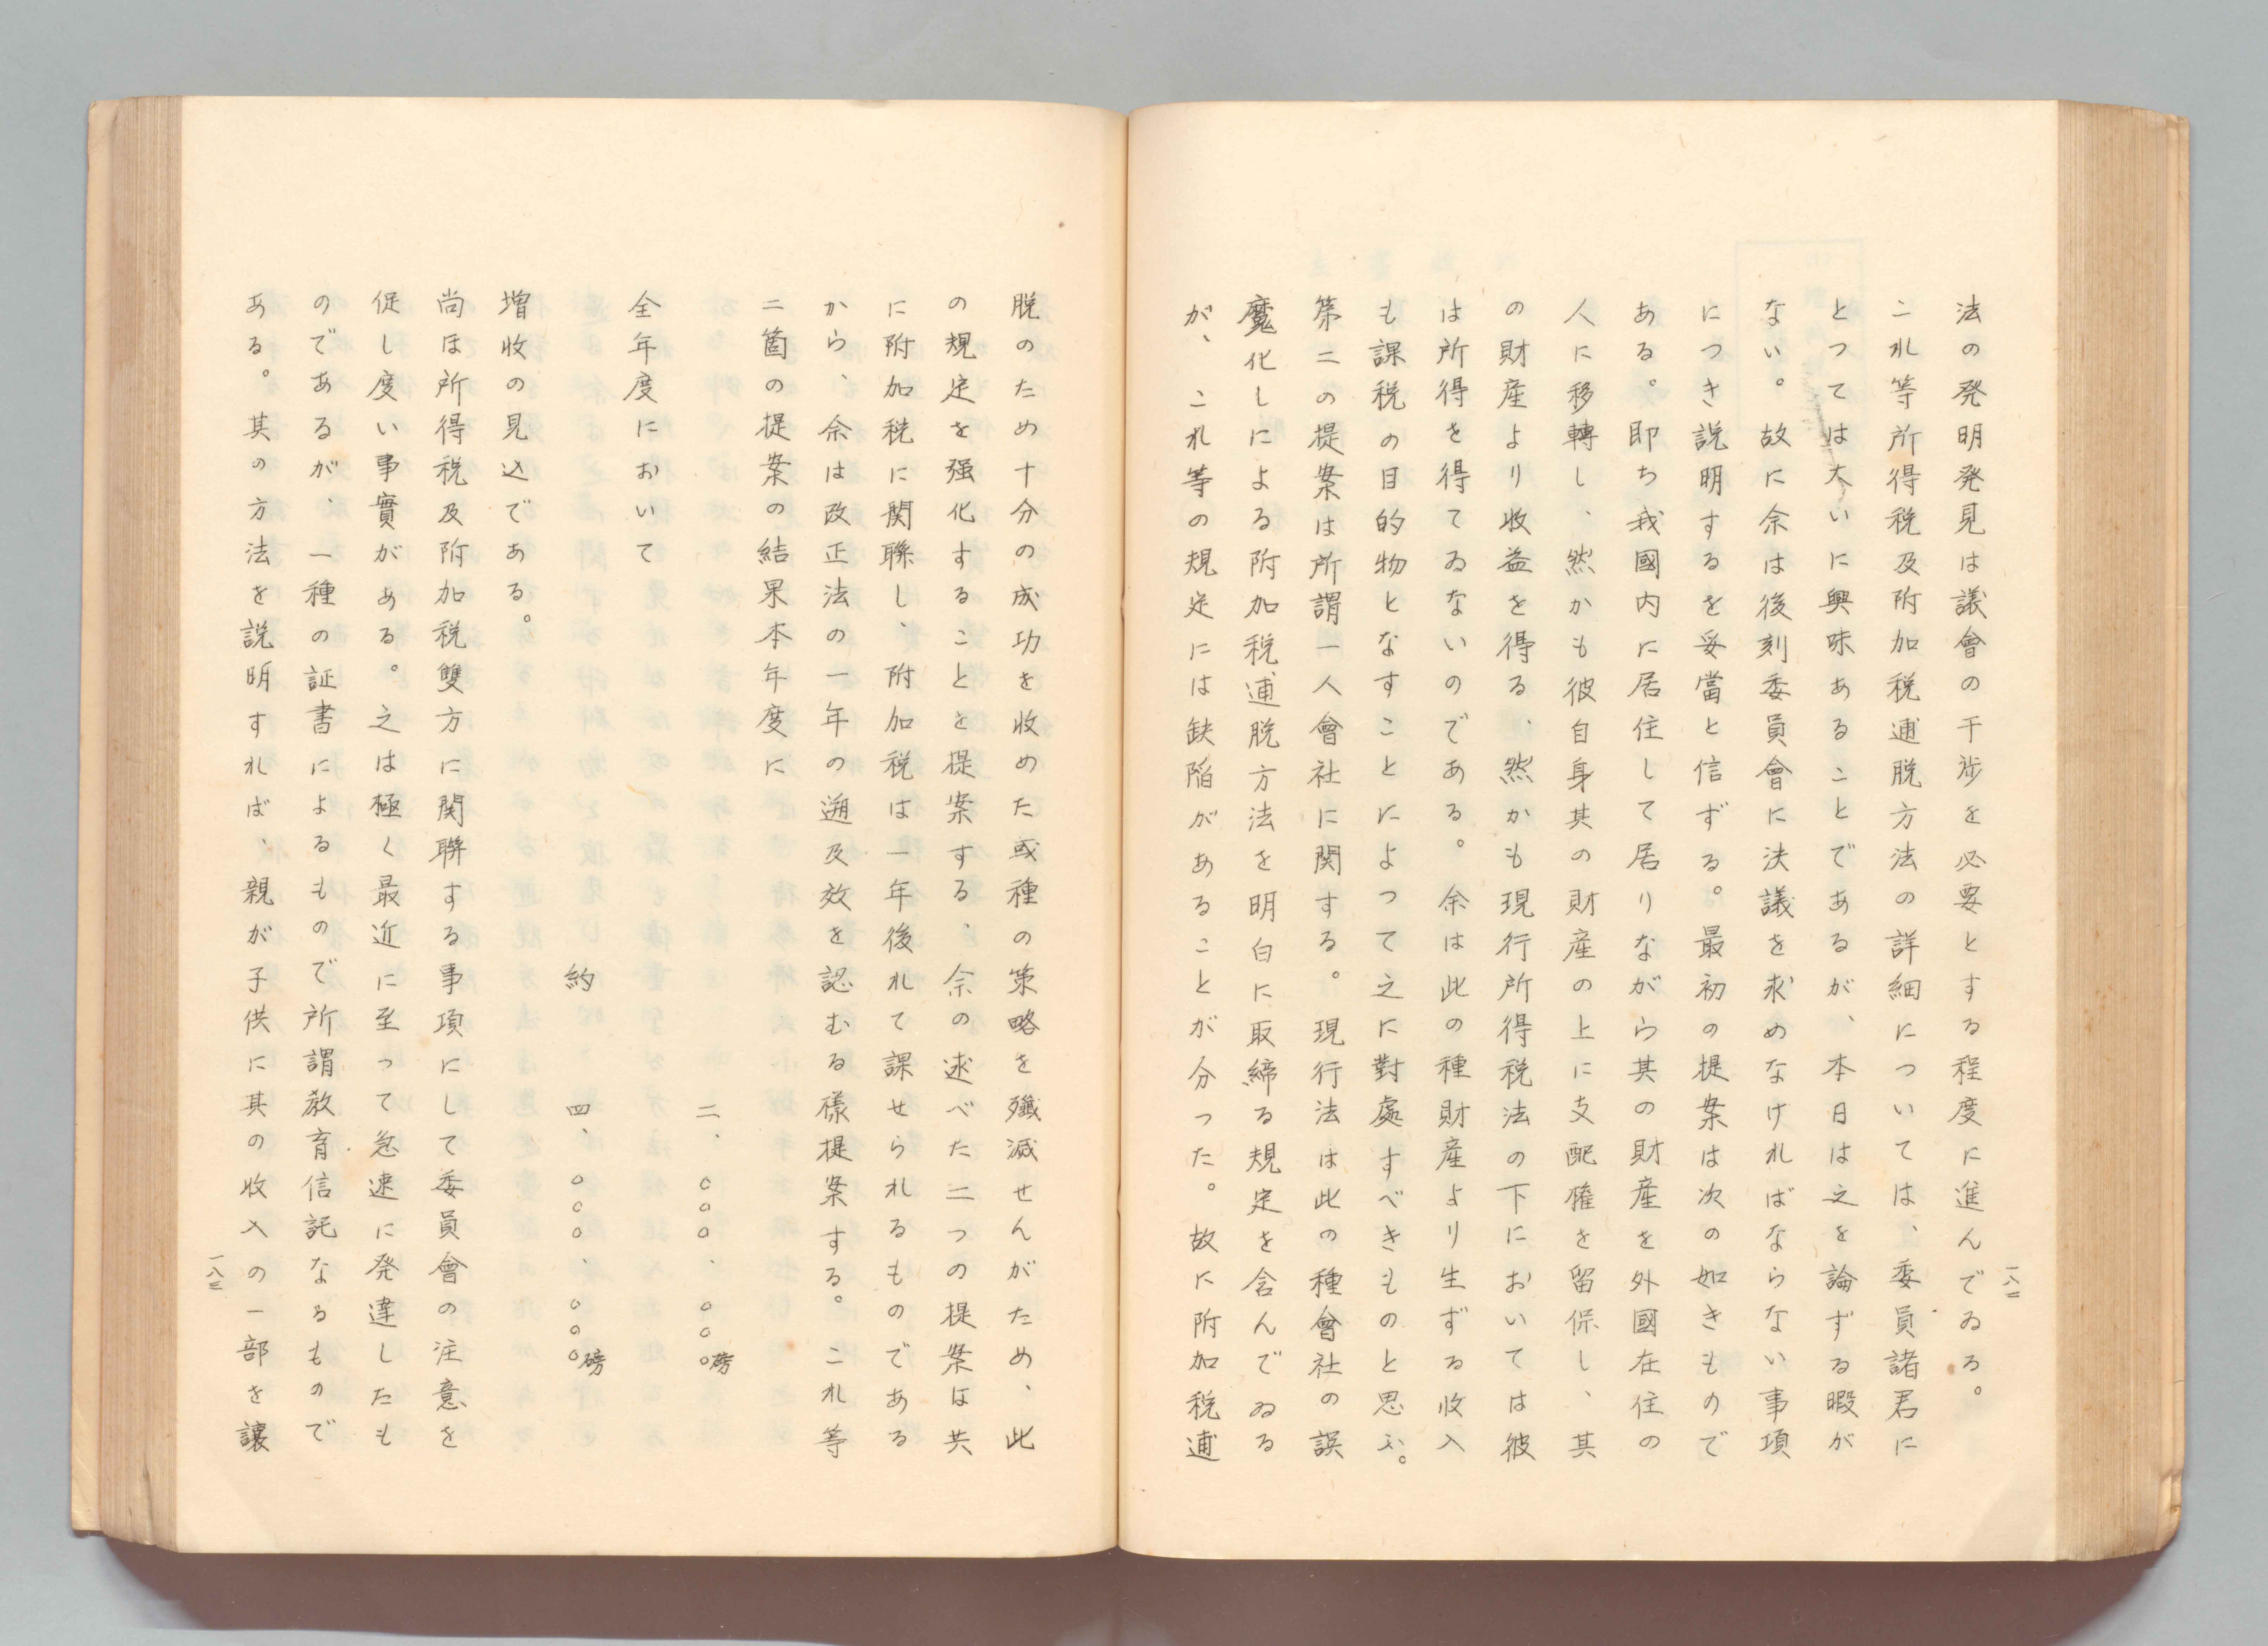 法の発明発見は議會の干渉を必要とする程度に進んでゐる。
これ等所得税及附加税逋脱方法の詳細については、委員諸君に
とっては大いに興味あることであるが、本日は之を論ずる暇が
ない。故に余は後刻委員會に決議を求めなければならない事項
につき説明するを妥當と信ずる。最初の提案は次の如きもので
ある。即ち我國内に居住して居りながら其の財産を外國在住の
人に移轉し、然かも彼自身其の財産の上に支配権を留保し、其
の財産より收益を得る、然かも現行所得税法の下においては彼
は所得を得てゐないのである。余は此の種財産より生ずる收入
も課税の目的物となすことによつて之に對處すべきものと思ふ。
第二の提案は所謂一人會社に関する。現行法は此の種會社の誤
魔化しによる附加税逋脱方法を明白に取締る規定を含んでゐる
が、これ等の規定には缺陥があることが分った。故に附加税逋
一八二
脱のため十分の成功を收めた或種の策略を殲滅せんがため、此
の規定を強化することを提案する、余の述べた二つの提案は共
に附加税に関聯し、附加税は一年後れて課せられるものである
から、余は改正法の一年の遡及效を認むる樣提案する。これ等
二箇の提案の結果本年度に
二、〇〇〇、〇〇〇磅
全年度において
約　四、〇〇〇、〇〇〇磅
増收の見込である。
尚ほ所得税及附加税雙方に関聯する事項にして委員會の注意を
促し度い事實がある。之は極く最近に至って急速に発達したも
のであるが、一種の証書によるもので所謂教育信託なるもので
ある。其の方法を説明すれば、親が子供に其の收入の一部を讓
一八三